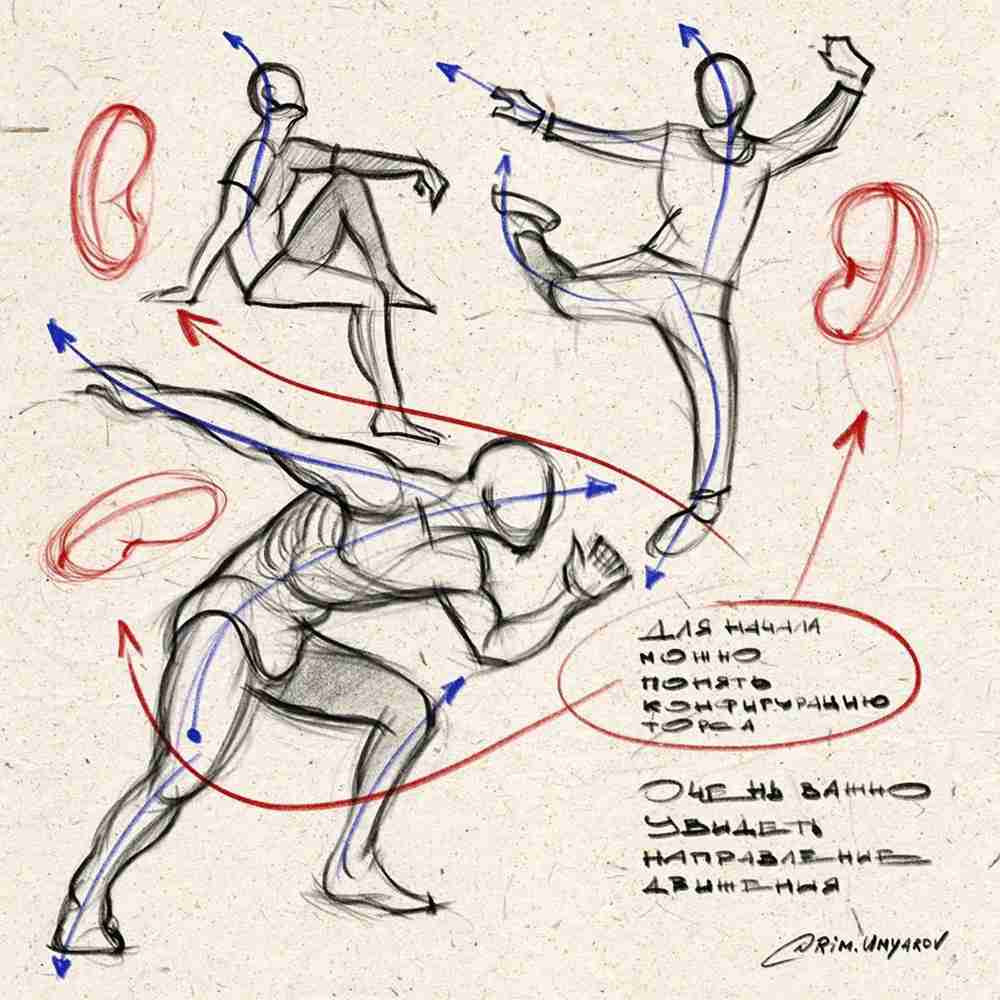 ДЛЯ НАЧАЛА
МОЖНО
ПОНЯТЬ
КОНФИГУРАЦИЮ
ТОРСА
ОЧЕНЬ ВАЖНО
УВИДЕТЬ
НАПРАВЛЕНИЕ
ДВИЖЕНИЯ
@RIM.UNYAROV